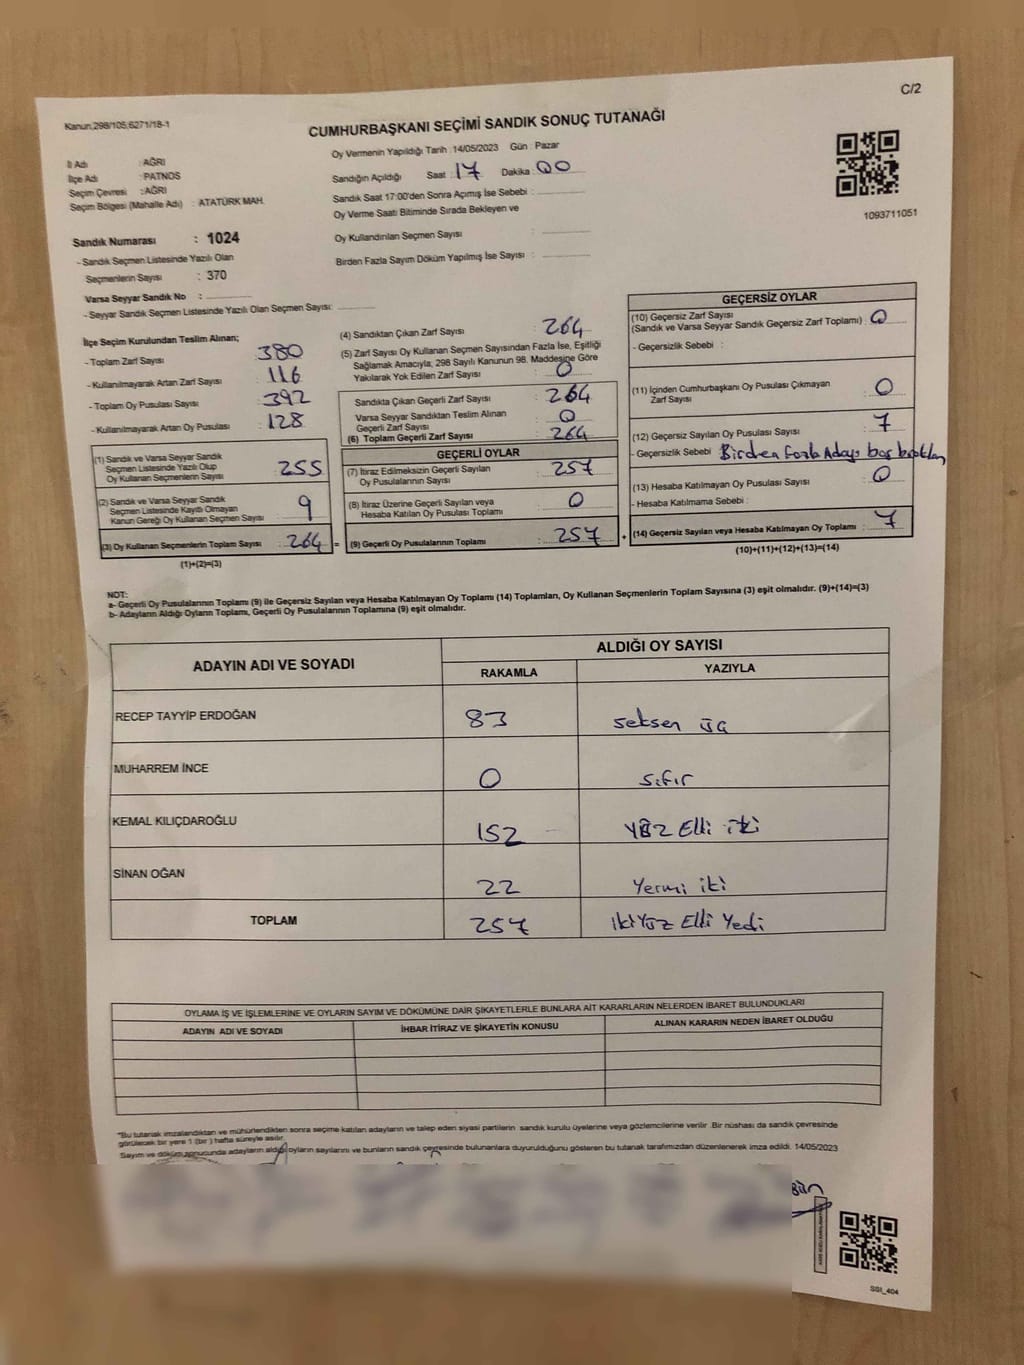 C/2
Kanun,298/105;6271/18-1
CUMHURBAŞKANI SEÇİMİ SANDIK SONUÇ TUTANAĞI
İl Adı : AĞRI
İlçe Adı : PATNOS
Seçim Çevresi : AĞRI
Seçim Bölgesi (Mahalle Adı) : ATATÜRK MAH.
Oy Vermenin Yapıldığı Tarih : 14/05/2023 Gün : Pazar
Sandığın Açıldığı Saat : 17 Dakika : 00
Sandık Saat 17:00'den Sonra Açımış İse Sebebi :
Oy Verme Saati Bitiminde Sırada Bekleyen ve
Oy Kullandırılan Seçmen Sayısı :
Birden Fazla Sayım Döküm Yapılmış İse Sayısı :
1093711051
Sandık Numarası : 1024
- Sandık Seçmen Listesinde Yazılı Olan
Seçmenlerin Sayısı : 370
Varsa Seyyar Sandık No :
- Seyyar Sandık Seçmen Listesinde Yazılı Olan Seçmen Sayısı:
İlçe Seçim Kurulundan Teslim Alınan;
- Toplam Zarf Sayısı : 380
- Kullanılmayarak Artan Zarf Sayısı : 116
- Toplam Oy Pusulası Sayısı : 392
- Kullanılmayarak Artan Oy Pusulası : 128
(1) Sandık ve Varsa Seyyar Sandık
Seçmen Listesinde Yazılı Olup
Oy Kullanan Seçmenlerin Sayısı : 255
(2) Sandık ve Varsa Seyyar Sandık
Seçmen Listesinde Kayıtlı Olmayan
Kanun Gereği Oy Kullanan Seçmen Sayısı : 9
(3) Oy Kullanan Seçmenlerin Toplam Sayısı : 264 =
(1)+(2)=(3)
(4) Sandıktan Çıkan Zarf Sayısı : 264
(5) Zarf Sayısı Oy Kullanan Seçmen Sayısından Fazla İse, Eşitliği
Sağlamak Amacıyla, 298 Sayılı Kanunun 98. Maddesine Göre
Yakılarak Yok Edilen Zarf Sayısı : 0
Sandıkta Çıkan Geçerli Zarf Sayısı : 264
Varsa Seyyar Sandıktan Teslim Alınan
Geçerli Zarf Sayısı : 0
(6) Toplam Geçerli Zarf Sayısı : 264
GEÇERLİ OYLAR
(7) İtiraz Edilmeksizin Geçerli Sayılan
Oy Pusulasının Sayısı : 257
(8) İtiraz Üzerine Geçerli Sayılan veya
Hesaba Katılan Oy Pusulası Toplamı : 0
(9) Geçerli Oy Pusulalarının Toplamı : 257 +
GEÇERSİZ OYLAR
(10) Geçersiz Zarf Sayısı
(Sandık ve Varsa Seyyar Sandık Geçersiz Zarf Toplamı) : 0
- Geçersizlik Sebebi :
(11) İçinden Cumhurbaşkanı Oy Pusulası Çıkmayan
Zarf Sayısı : 0
(12) Geçersiz Sayılan Oy Pusulası Sayısı : 7
- Geçersizlik Sebebi : Birden fazla Adaya
(13) Hesaba Katılmayan Oy Pusulası Sayısı : 0
- Hesaba Katılmama Sebebi :
(14) Geçersiz Sayılan veya Hesaba Katılmayan Oy Toplamı : 7
(10)+(11)+(12)+(13)=(14)
NOT:
a- Geçerli Oy Pusulalarının Toplamı (9) ile Geçersiz Sayılan veya Hesaba Katılmayan Oy Toplamı (14) Toplamları, Oy Kullanan Seçmenlerin Toplam Sayısına (3) eşit olmalıdır. (9)+(14)=(3)
b- Adayların Aldığı Oyların Toplamı, Geçerli Oy Pusulalarının Toplamına (9) eşit olmalıdır.
ADAYIN ADI VE SOYADI ALDIĞI OY SAYISI
RAKAMLA YAZIYLA
RECEP TAYYİP ERDOĞAN 83 seksen üç
MUHARREM İNCE 0 sıfır
KEMAL KILIÇDAROĞLU 152 YÜZ Elli iki
SİNAN OĞAN 22 Yermi iki
TOPLAM 257 ikiYüz Elli Yedi
OYLAMA İŞ VE İŞLEMLERİNE VE OYLARIN SAYIM VE DÖKÜMÜNE DAİR ŞİKAYETLERLE BUNLARA AİT KARARLARIN NELERDEN İBARET BULUNDUKLARI
ADAYIN ADI VE SOYADI İHBAR İTİRAZ VE ŞİKAYETİN KONUSU ALINAN KARARIN NEDEN İBARET OLDUĞU
*Bu tutanak imzalandıktan ve mühürlendikten sonra seçime katılan adayların ve talep eden siyasi partilerin sandık kurulu üyelerine veya gözlemcilerine verilir. Bir nüshası da sandık çevresinde
görülecek bir yere 1 (bir ) hafta süreyle asılır.
Sayım ve döküm sonucunda adayların aldığı oyların sayılarını ve bunların sandık çevresinde bulunanlara duyurulduğunu gösteren bu tutanak tarafımızdan düzenlenerek imza edildi. 14/05/2023
SSI_404